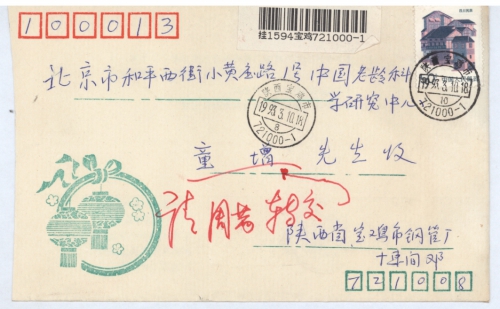 100013
挂1594宝鸡721000-1
北京市和平西街小黄庄路1号中国老龄科
学研究中心
陕西宝鸡市
1993.3.10.18
8
721000-1
陕西宝鸡市
1993.3.10.18
10
721000-1
童 增 先生收
请周老转交
陕西省宝鸡市钢管厂
十车间邓
721008